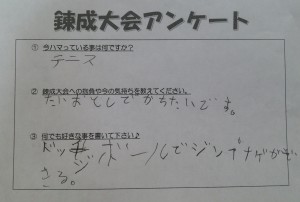 錬成大会アンケート
① 今ハマっている事は何ですか?
テニス
② 錬成大会への抱負や今の気持ちを教えてください。
たいおとしでかちたいです。
③ 何でも好きな事を書いて下さい♪
ドッジボールでジャンプナゲができる。